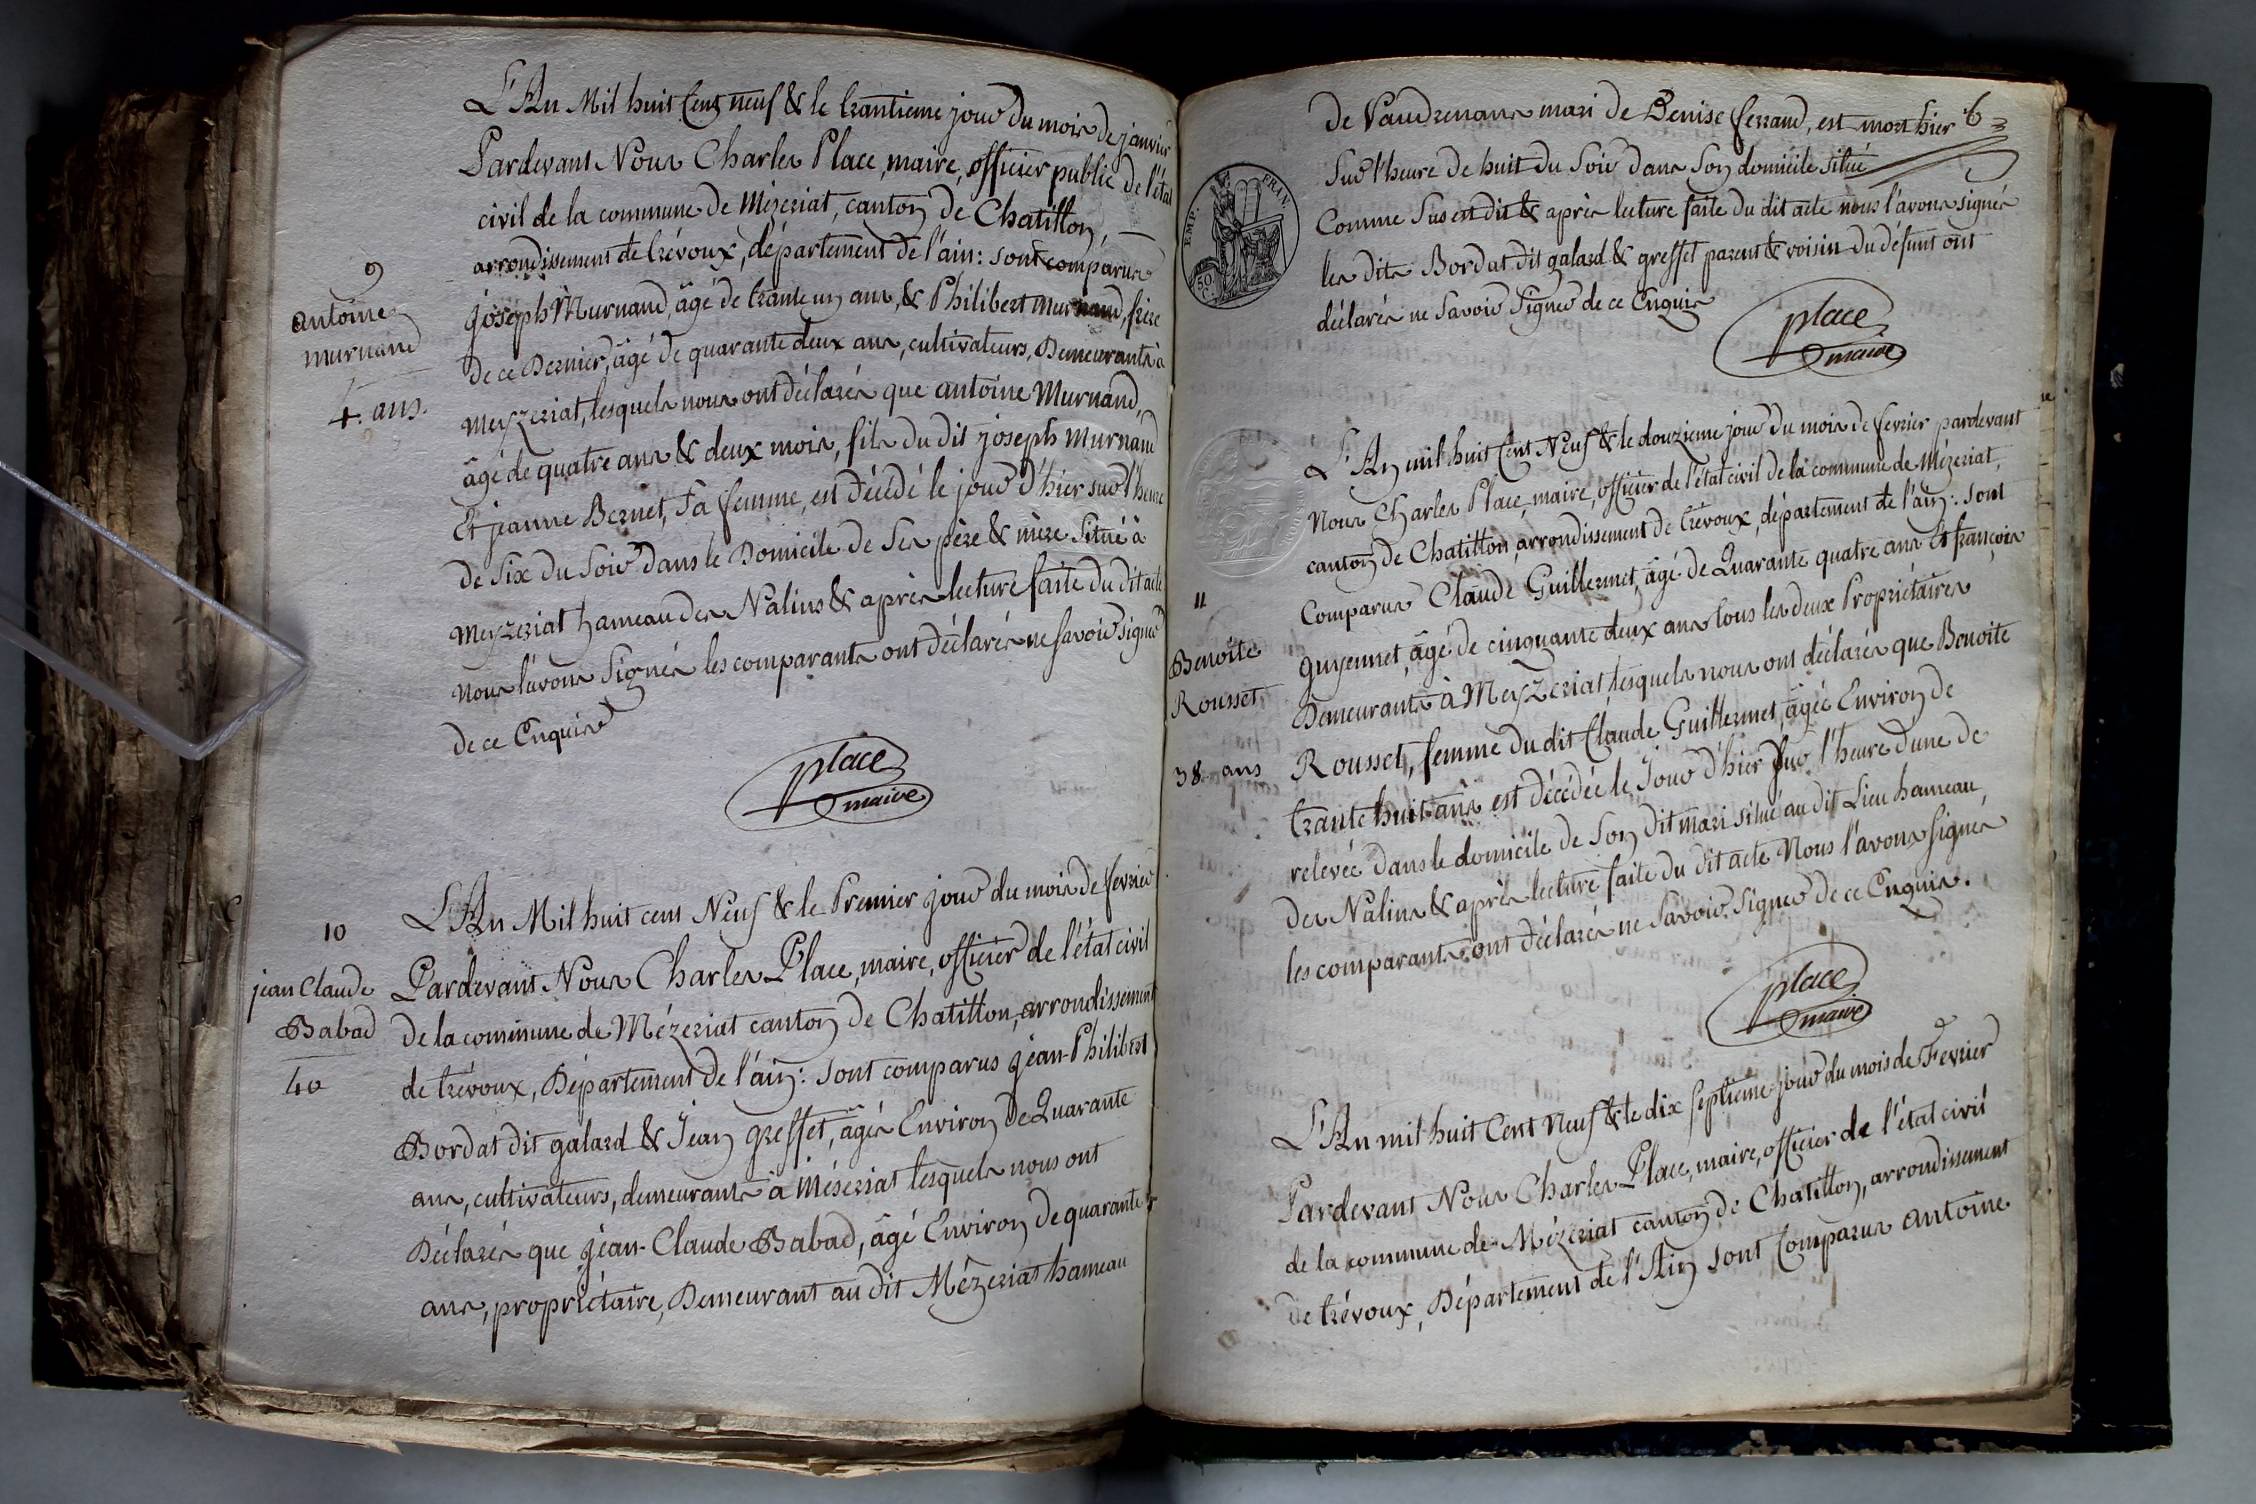 L'An Mil huit Cent neuf & le trantieme jour du mois de janvier
Pardevant Nous Charles Place, maire, officier public de l'état
civil de la commune de Mézeriat, canton de Chatillon,
arrondissement de trévoux, département de l'ain: sont comparus
9
antoine
murnand
4. ans.
joseph Murnand, âgé de trante un ans, & Philibert Murnand, frère
de ce Dernier, âgé de quarante deux ans, cultivateurs, Demeurants à
Meyzeriat, lesquels nous ont déclarés que antoine Murnand,
âgé de quatre ans & deux mois, fils du dit joseph Murnand
Et jeanne Bernet, Sa femme, est décédé le jour d'hier sur l'heure
de Six du Soir dans le Domicile de Ses père & mère Situé à
Meyzeriat hameau des Nalins & après lecture faite du dit acte
nous l'avons Signés les comparants ont déclarés ne Savoir Signer
de ce Enquis
place
maire
L'An Mil huit cent Neuf & le Premier jour du mois de fevrier
10
jean Claude
Babad
40
Pardevant Nous Charles Place, maire, officier de l'état civil
de la commune de Mézeriat canton de Chatillon, arrondissement
de trévoux, Département de l'ain: sont comparus jean-Philibert
Bordat dit galard & Jean greffet, âgés Environ de Quarante
ans, cultivateurs, demeurants à Méseriat lesquels nous ont
Déclarés que jean-Claude Babad, âgé Environ de quarante
ans, propriétaire, Demeurant au dit Mézeriat hameau
de Vaudrenans mari de Denise ferrand, est mort hier
6
Sur l'heure de huit du Soir dans Son domicile Situé
EMP. FRAN.
50 C.
Comme Sus est dit & après lecture faite du dit acte nous l'avons signés
les dits Bordat dit galard & greffet parent & voisin du défunt ont
déclarés ne Savoir Signer de ce Enquis
place
maire
L'An mil huit Cent Neuf & le douzieme jour du mois de fevrier pardevant
Nous Charles Place, maire, officier de l'état civil de la commune de Mézeriat,
canton de Chatillon, arrondissement de trévoux, département de l'ain: sont
11
Benoite
Rousset
38 ans
Comparus Claude Guillermet, âgé de Quarante quatre ans Et françois
guyennet, âgé de cinquante deux ans tous les deux Propriétaires
Demeurants à Meyzeriat lesquels nous ont déclarés que Benoite
Rousset, femme du dit Claude Guillermet, âgée Environ de
trante huit ans est décédée le Jour d'hier Sur l'heure d'une de
relevée dans le domicile de Son dit mari situé au dit Lieu hameau
des Nalins & après lecture faite du dit acte Nous l'avons Signés
les comparants ont déclarés ne Savoir Signer de ce Enquis.
place
maire
L'An mil huit Cent Neuf & le dix septieme jour du mois de Fevrier
Pardevant Nous Charles Place, maire, officier de l'état civil
de la commune de Mézeriat canton de Chatillon, arrondissement
de trévoux, Département de l'Ain sont Comparus antoine